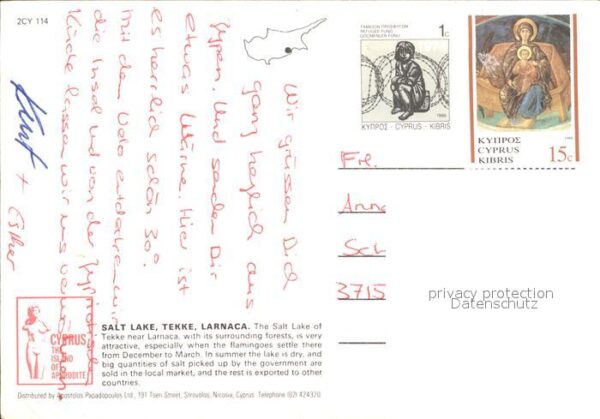 2CY 114
Wir grüssen Dich
ganz herzlich aus
Zypern. Und senden Dir
etwas Wärme. Hier ist
es herrlich schön 30°.
Mit dem Velo entdecken wir
die Insel und von der
Küche lassen wir uns
Kurt + Esther
ΤΑΜΕΙΟΝ ΠΡΟΣΦΥΓΩΝ
REFUGEE FUND
GÖÇMENLER FONU
1c
ΚΥΠΡΟΣ - CYPRUS - KIBRIS
ΚΥΠΡΟΣ
CYPRUS
KIBRIS
15c
Frl.
Anna
Sch
3715
privacy protection
Datenschutz
CYPRUS
THE
ISLAND
OF
APHRODITE
SALT LAKE, TEKKE, LARNACA. The Salt Lake of
Tekke near Larnaca, with its surrounding forests, is very
attractive, especially when the flamingoes settle there
from December to March. In summer the lake is dry, and
big quantities of salt picked up by the government are
sold in the local market, and the rest is exported to other
countries.
Distributed by Apostolos Papadopoulos Ltd., 191 Tseri Street, Strovolos, Nicosia, Cyprus Telephone (02) 424320